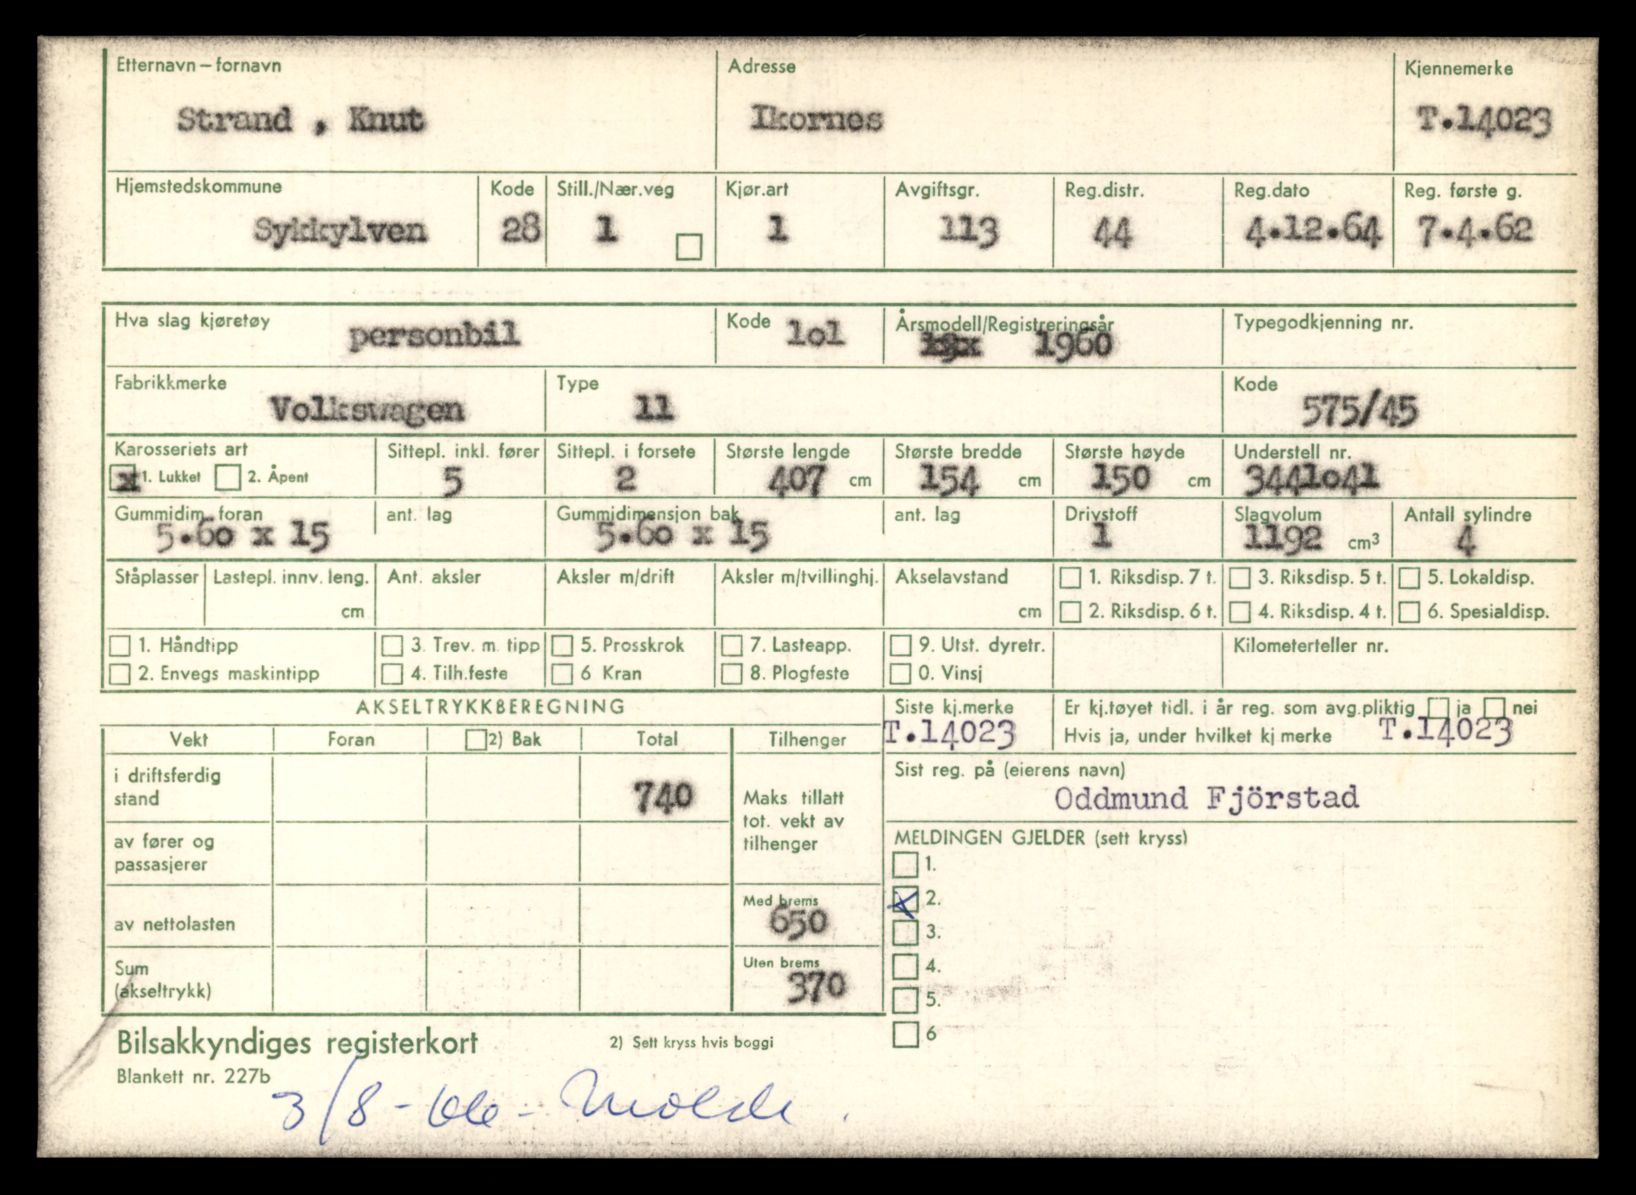 Etternavn – fornavn Adresse Kjennemerke
Strand , Knut Ikornes T.14023
Hjemstedskommune Kode Still./Nær.veg Kjør.art Avgiftsgr. Reg.distr. Reg.dato Reg. første g.
Sykkylven 28 1 1 113 44 4.12.64 7.4.62
Hva slag kjøretøy Kode Årsmodell/Registreringsår Typegodkjenning nr.
personbil lol 1960
Fabrikkmerke Type Kode
Volkswagen 11 575/45
Karosseriets art Sittepl. inkl. fører Sittepl. i forsete Største lengde Største bredde Største høyde Understell nr.
x 1. Lukket 2. Åpent 5 2 407 cm 154 cm 150 cm 3441o41
Gummidim. foran ant. lag Gummidimensjon bak ant. lag Drivstoff Slagvolum Antall sylindre
5.6o x 15 5.6o x 15 1 1192 cm3 4
Ståplasser Lastepl. innv. leng. Ant. aksler Aksler m/drift Aksler m/tvillinghj. Akselavstand 1. Riksdisp. 7 t. 3. Riksdisp. 5 t. 5. Lokaldisp.
cm cm 2. Riksdisp. 6 t. 4. Riksdisp. 4 t. 6. Spesialdisp.
1. Håndtipp 3. Trev. m. tipp 5. Prosskrok 7. Lasteapp. 9. Utst. dyretr. Kilometerteller nr.
2. Envegs maskintipp 4. Tilh.feste 6 Kran 8. Plogfeste 0. Vinsj
AKSELTRYKKBEREGNING Siste kj.merke Er kj.tøyet tidl. i år reg. som avg.pliktig ja nei
T.14023 Hvis ja, under hvilket kj merke T.14023
Vekt Foran 2) Bak Total Tilhenger
Sist reg. på (eierens navn)
Oddmund Fjörstad
i driftsferdig
stand 740 Maks tillatt
tot. vekt av
tilhenger
MELDINGEN GJELDER (sett kryss)
av fører og
passasjerer
1.
2.
3.
4.
5.
6
av nettolasten Med brems
650
Sum
(akseltrykk) Uten brems
370
Bilsakkyndiges registerkort 2) Sett kryss hvis boggi
Blankett nr. 227b
3/8-66- Molde.